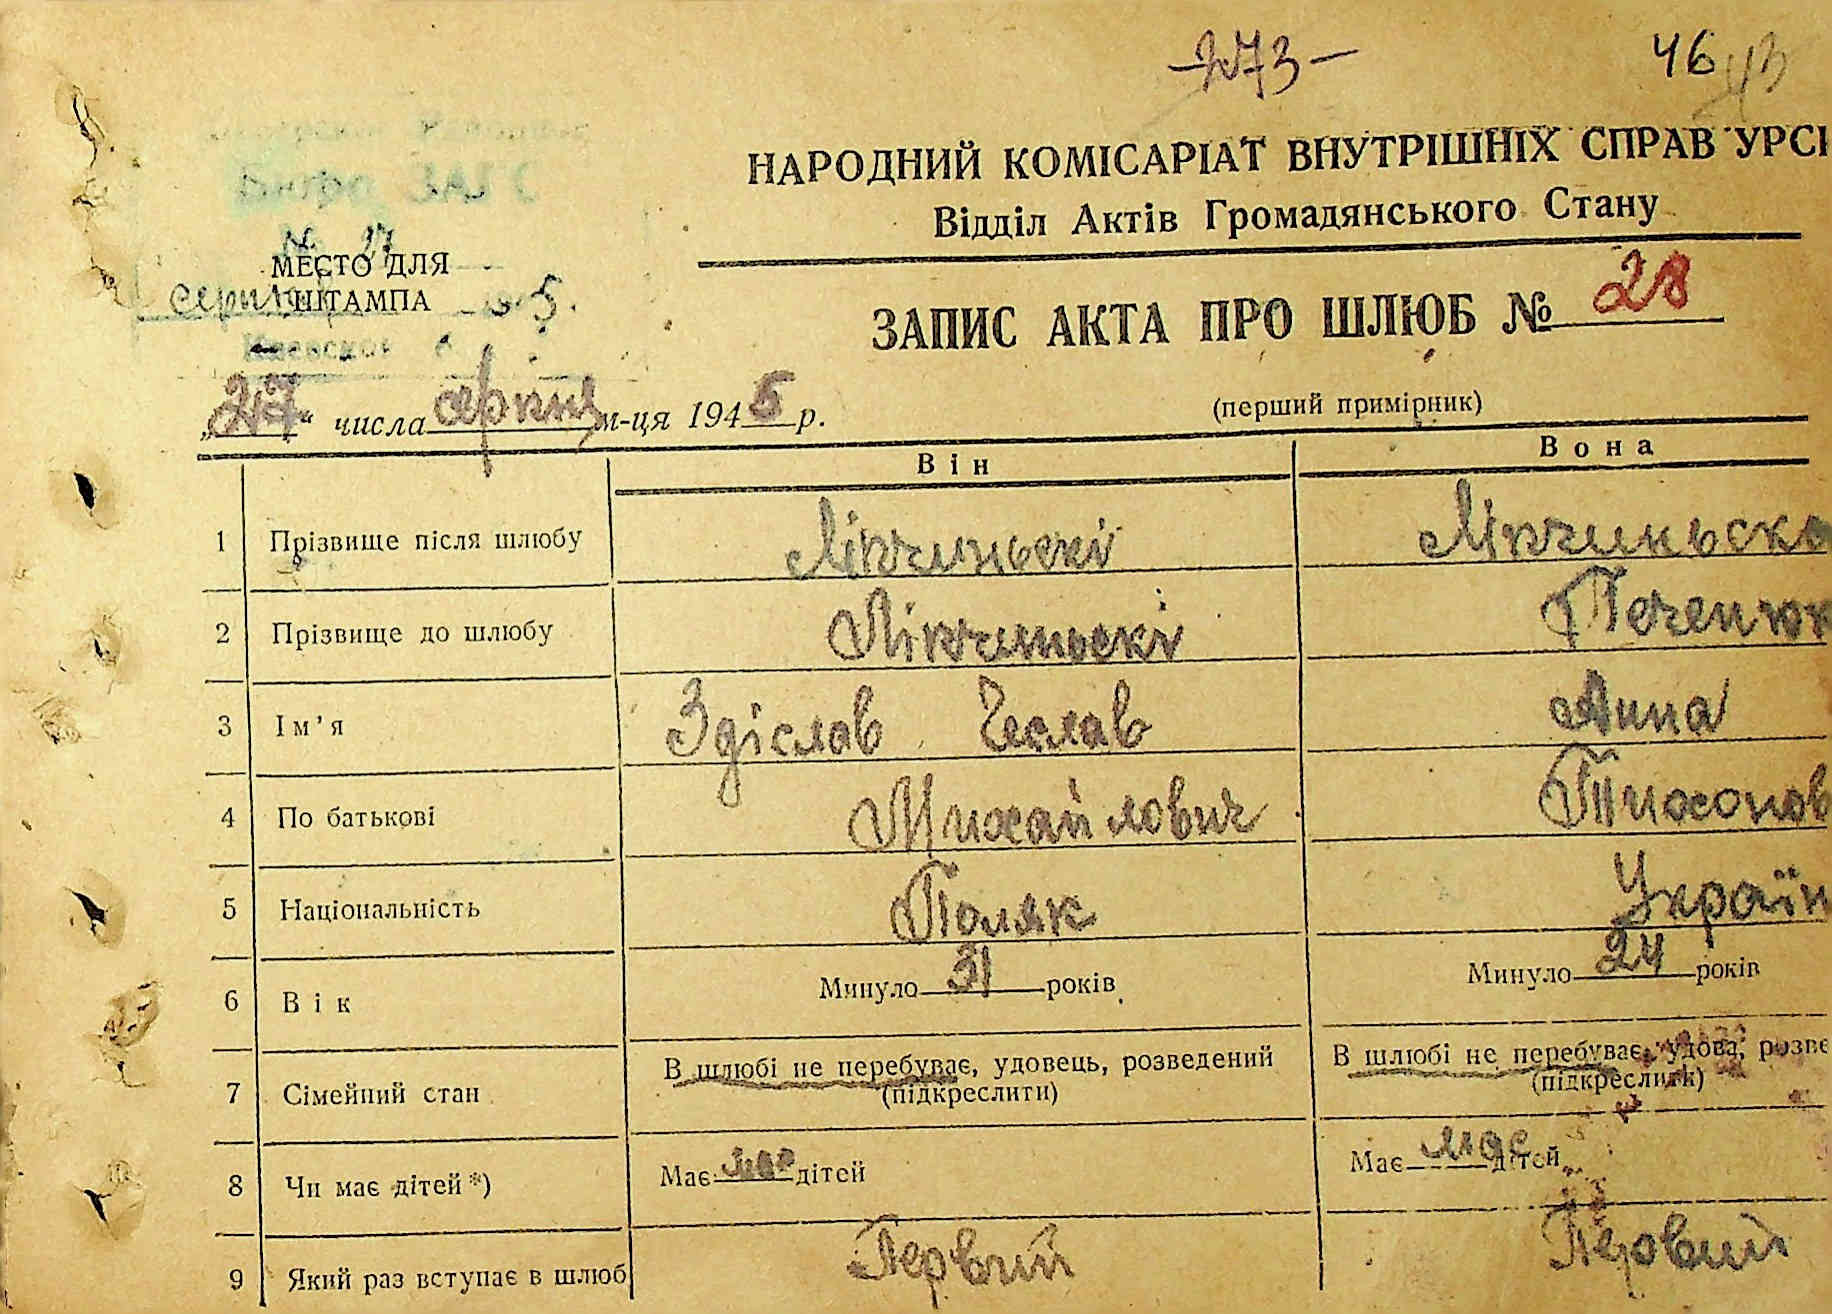 -273-
46 43
Бюро ЗАГС
№ 27
МЕСТО ДЛЯ
ШТАМПА
5.
НАРОДНИЙ КОМІСАРІАТ ВНУТРІШНІХ СПРАВ УРСР
Відділ Актів Громадянського Стану
ЗАПИС АКТА ПРО ШЛЮБ № 28
(перший примірник)
„27“ числа серпня м-ця 1945 р.
Він Вона
1 Прізвище після шлюбу Лікчиньскі Лікчиньска
2 Прізвище до шлюбу Лікчиньскі Печенюк
3 Ім’я Здіслав Чеслав Анна
4 По батькові Михайлович Тихонов
5 Національність Поляк Україн
6 Вік Минуло 31 років Минуло 24 років
7 Сімейний стан В шлюбі не перебуває, удовець, розведений (підкреслити) В шлюбі не перебуває, удова, розве (підкреслити)
8 Чи має дітей *) Має має дітей Має має дітей
9 Який раз вступає в шлюб Первий Первий